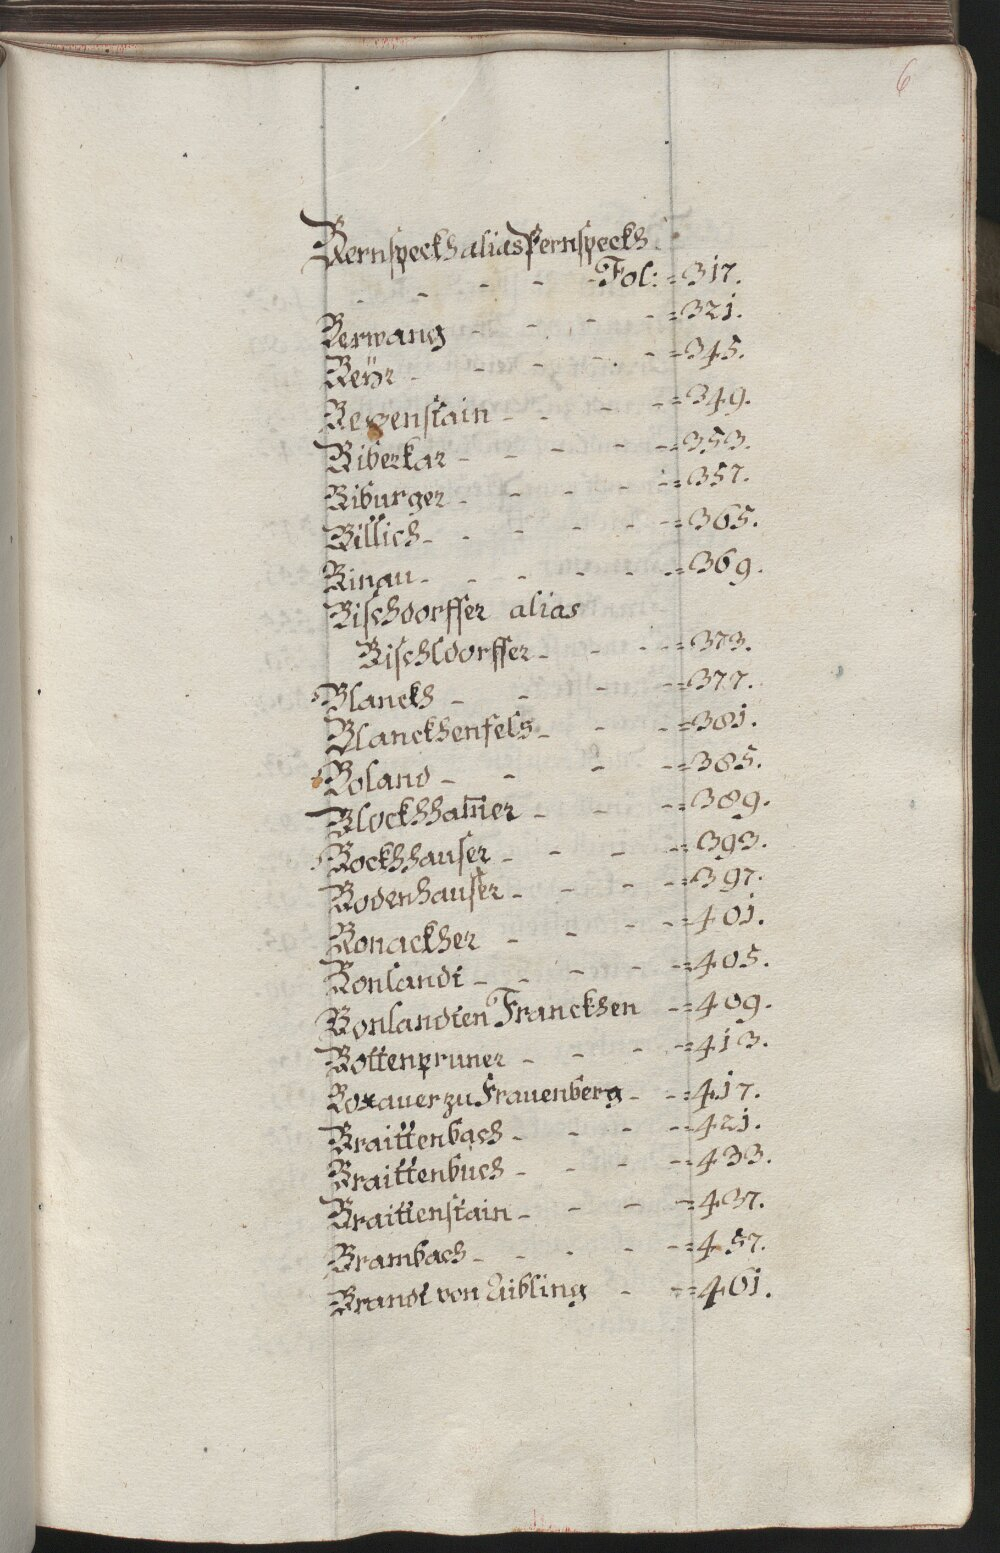 6
Bernspeckh alias Pernspeckh
- - - - - Fol: = 317.
Berwang - - - - = 321.
Beÿr - - - - = 345.
Bexenstain - - - = 349.
Biberkar - - - - = 353.
Biburger - - - - = 357.
Billich - - - - = 365.
Binau - - - - - = 369.
Bischdorffer alias
Bischldorffer - - - = 373.
Blanckh - - - - = 377.
Blanckhenfels - - - = 381.
Boland - - - - = 385.
Blockhham̄er - - - = 389.
Bockhhauser - - - - = 393.
Bodenhauser - - - = 397.
Bonackher - - - = 401.
Bonlandt - - - - = 405.
Bonlandten Franckhen - = 409.
Bottenpruner - - - = 413.
Boxauer zu Frauenberg - - = 417.
Braittenbach - - - = 421.
Braittenbuch - - - = 433.
Braittenstain - - - = 437.
Brambach - - - - = 457.
Brandt von Aibling - = 461.